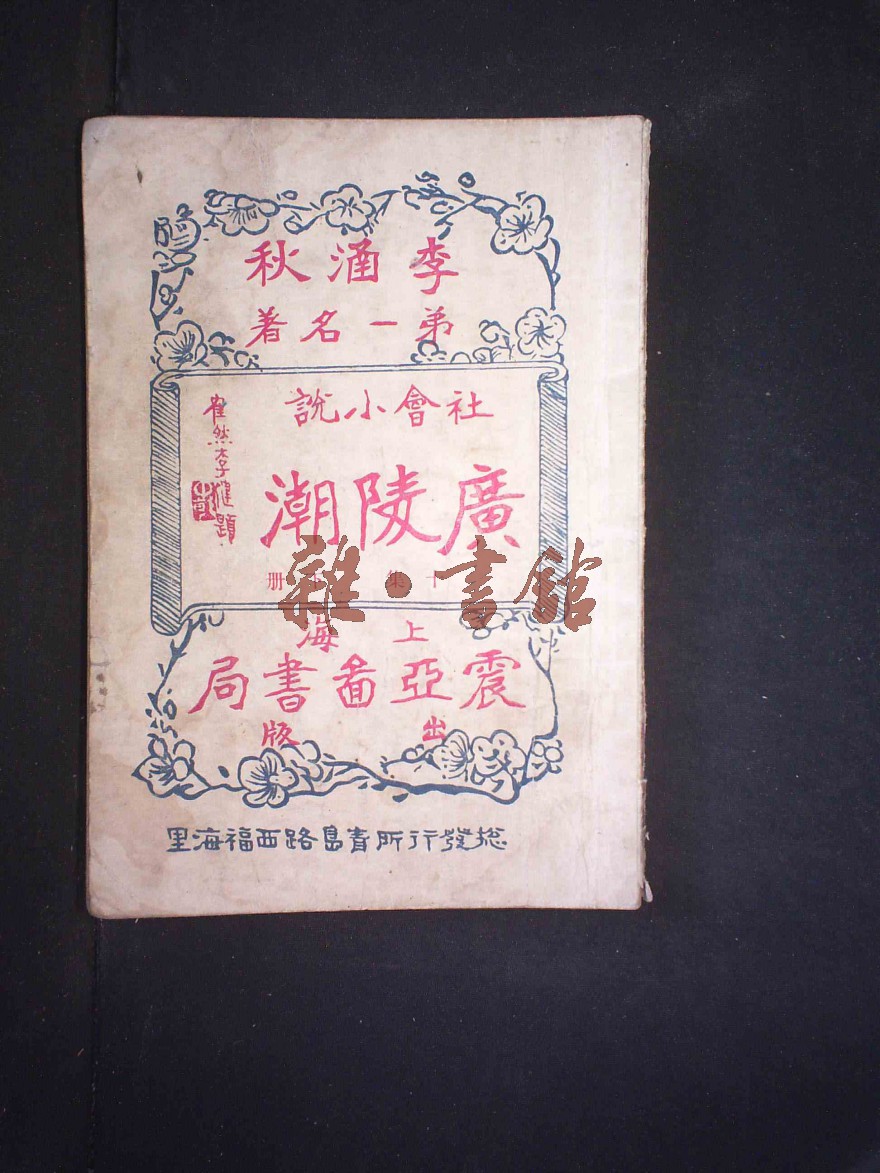 李涵秋
弟一名著
社會小說
廣陵潮
十集 册
崔然李健題
上海
震亞啚書局
出版
總發行所青島路西福海里
雜·書館